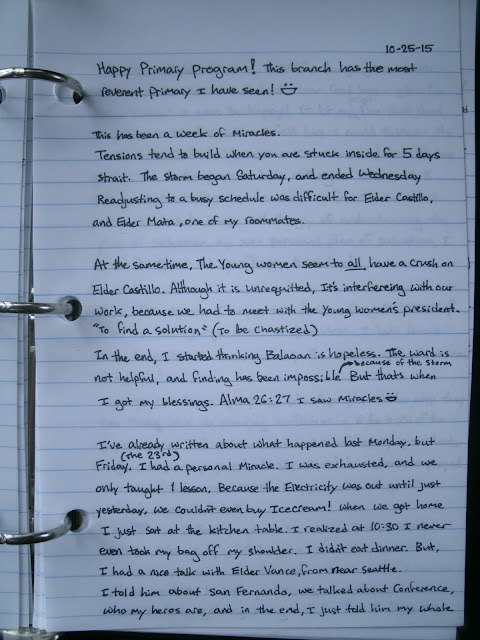 10-25-15
Happy Primary Program! This branch has the most
reverent Primary I have seen!
This has been a week of Miracles.
Tensions tend to build when you are stuck inside for 5 days
strait. The storm began Saturday, and ended Wednesday
Readjusting to a busy schedule was difficult for Elder Castillo,
and Elder Mata, one of my roommates.
At the same time, The Young women seem to all have a crush on
Elder Castillo. Although it is unrequitted, It's interfereing with our
work, because we had to meet with the Young Women's president.
"To find a solution." (To be chastized)
In the end, I started thinking Balaoan is hopeless. The ward is
because of the storm
not helpful, and finding has been impossible But thats when
I got my blessings. Alma 26:27 I saw Miracles
I've already written about what happened last Monday. but
(The 23rd)
Friday, I had a personal Miracle. I was exhausted, and we
only taught 1 lesson. Because the Electricity was out until just
yesterday, we couldn't even buy Icecream! When we got home
I just sat at the kitchen table. I realized at 10:30 I never
even took my bag off my shoulder. I didn't eat dinner. But,
I had a nice talk with Elder Vance, from near seattle.
I told him about San Fernando, we talked about Conference,
who my heros are, and in the end, I just told him my whole